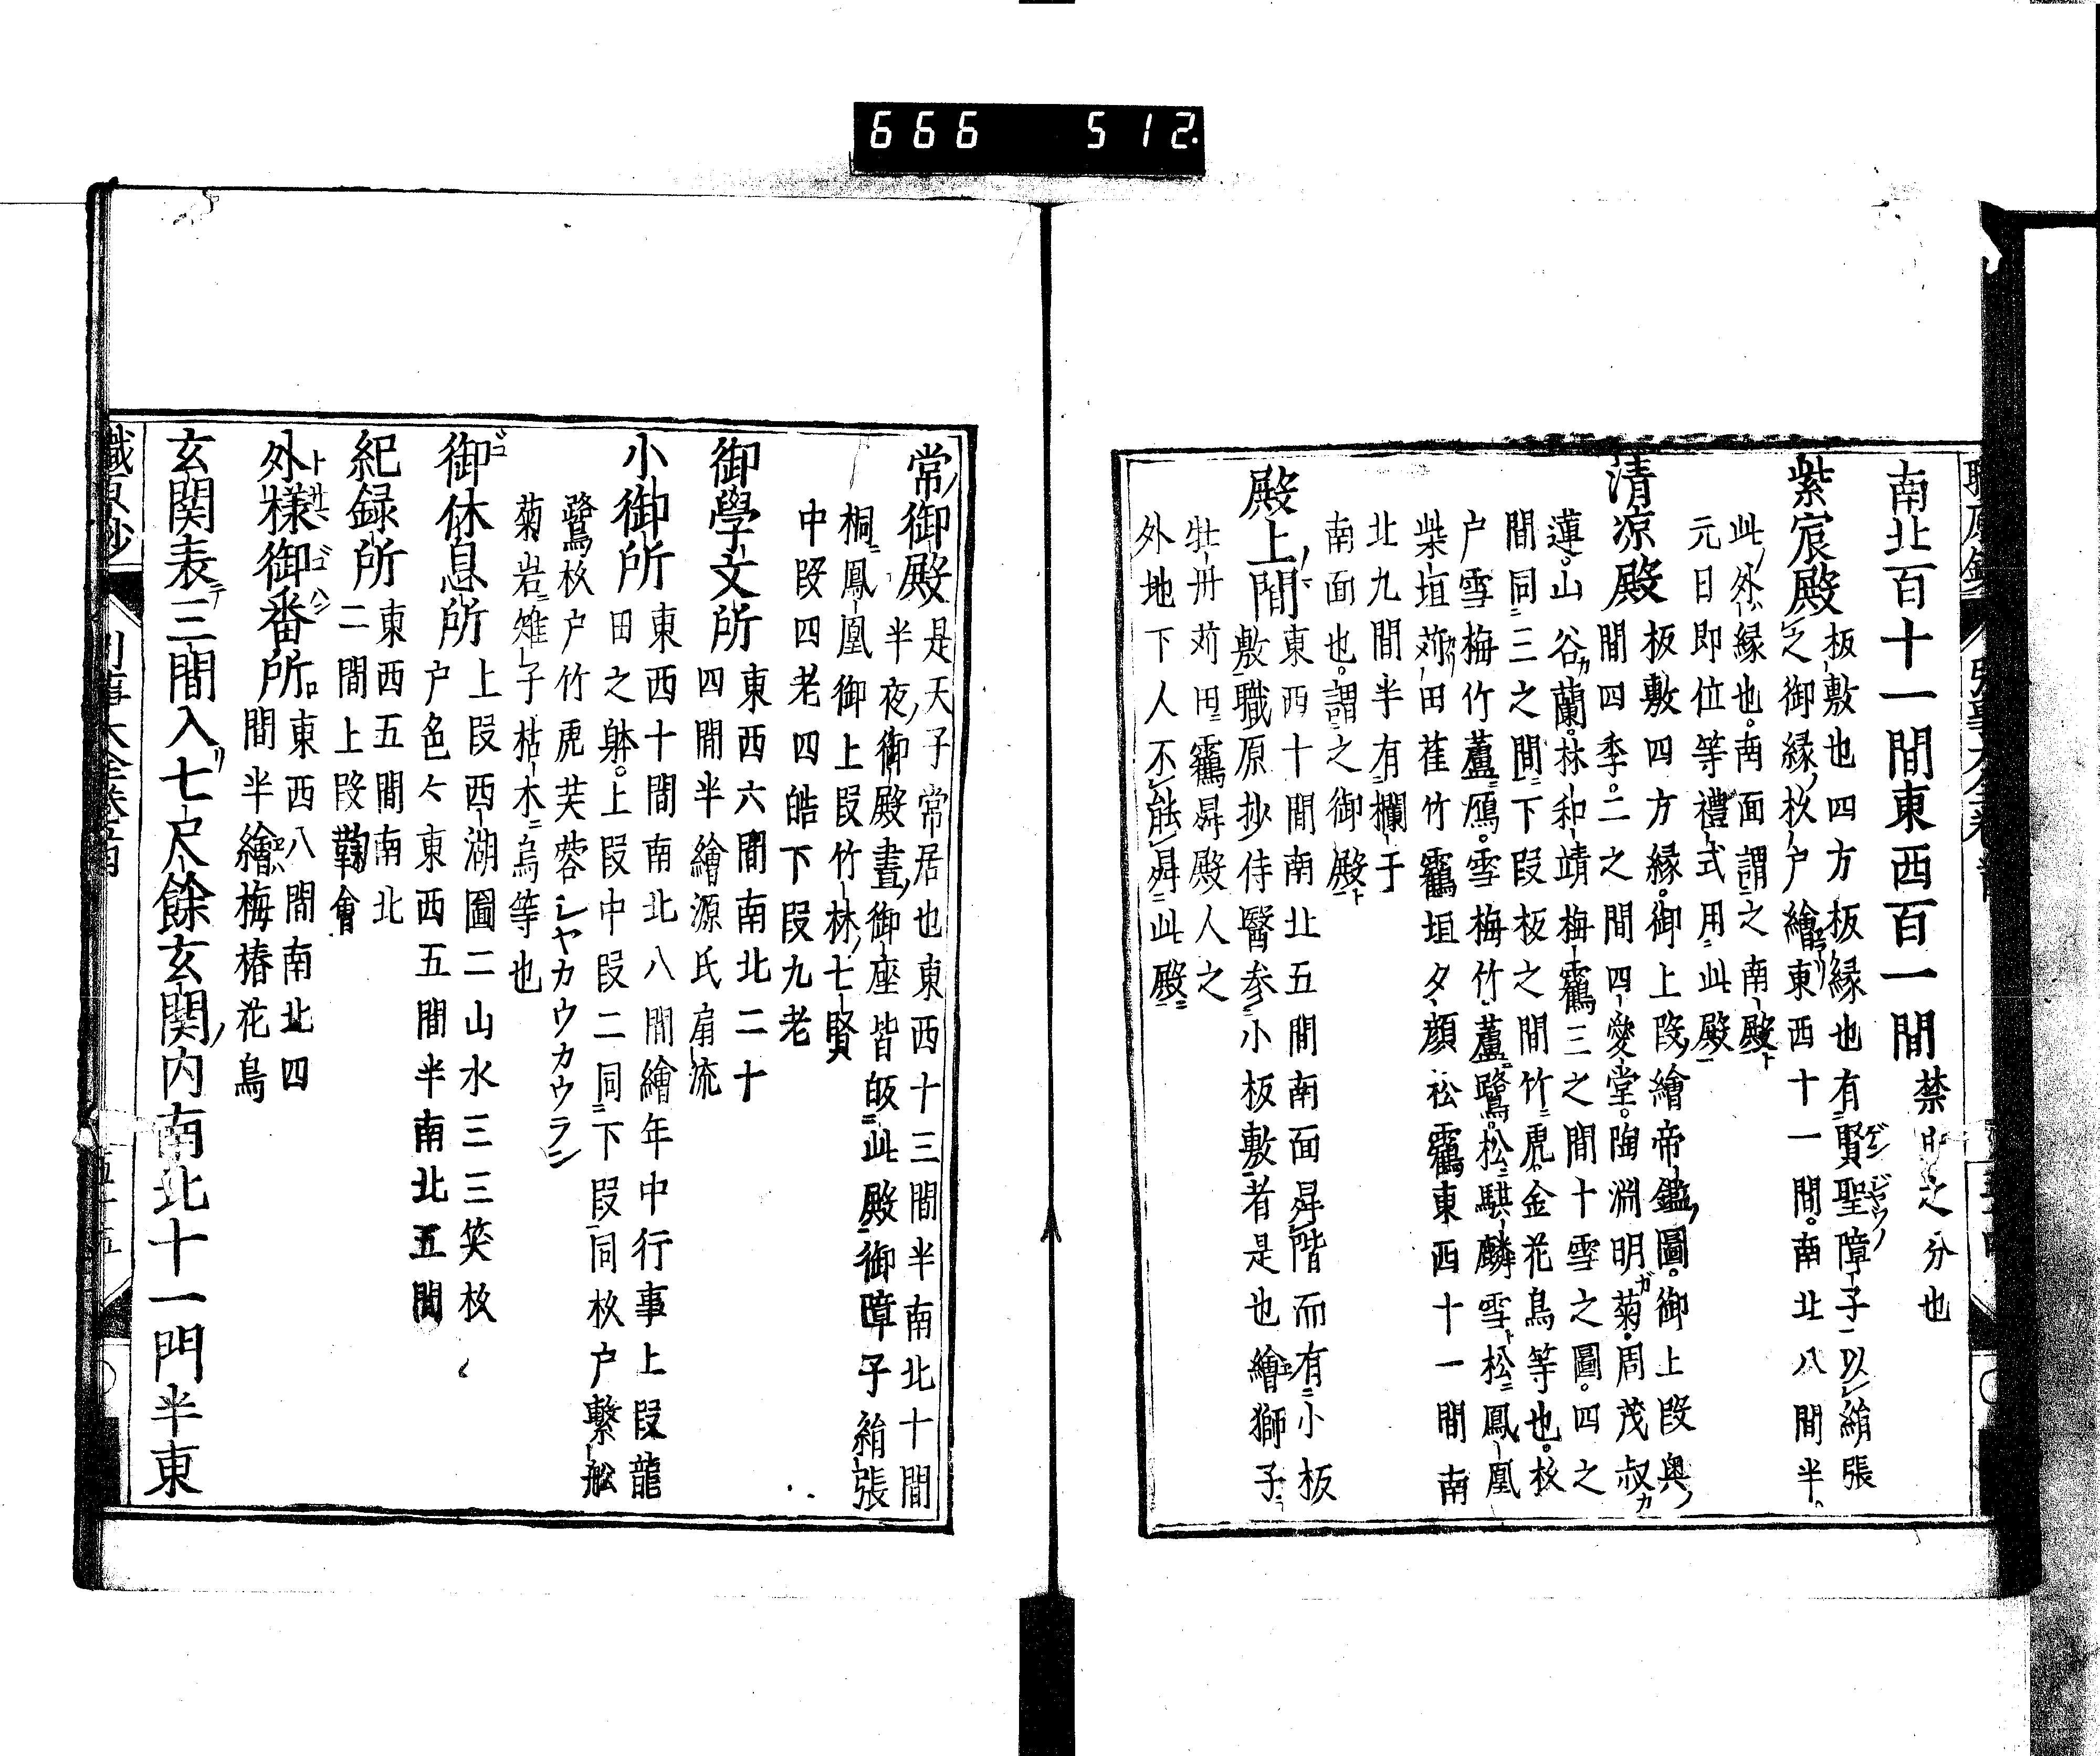 666 512
南北百十一間東西百一間
禁中之分也
紫宸殿
板敷也四方板縁也有賢聖障子以絹張
之御縁杦戸繪東西十一間南北八間半
此外縁也南面謂之南殿
元日即位等禮式用此殿
清凉殿
板敷四方縁御上段繪帝鑑圖御上段奥
間四季二之間四愛堂陶淵明菊周茂叔
蓮山谷蘭林和靖梅靏三之間十雪之圖四之
間同三之間下段板之間竹虎金花鳥等也杦
戸雪梅竹蘆鴈雪梅竹蘆鷺松騏麟雪松鳳凰
柴垣苅田萑竹靏垣夕顔松靏東西十一間南
北九間半有欄于
南面也謂之御殿
殿上間
東西十間南北五間南面昇階而有小板
敷職原抄侍醫参小板敷者是也繪獅子
牡丹苅田靏昇殿人之
外地下人不能昇此殿
常御殿
是天子常居也東西十三間半南北十間
半夜御殿晝御座皆皈此殿御障子絹張
桐鳳凰御上段竹林七賢
中段四老四皓下段九老
御學文所
東西六間南北二十
四間半繪源氏扇流
小御所
東西十間南北八間繪年中行事上段龍
田之躰上段中段二同下段同杦戸繋舩
鷺杦戸竹虎芙蓉シヤカウカウラン
菊岩雉子枯木烏等也
御休息所
上段西湖圖二山水三三笑杦
戸色々東西五間半南北五間
紀録所
東西五間南北
二間上段鞠會
外様御番所
東西八間南北四
間半繪梅椿花鳥
玄関表三間入七尺餘玄関内南北十一門半東